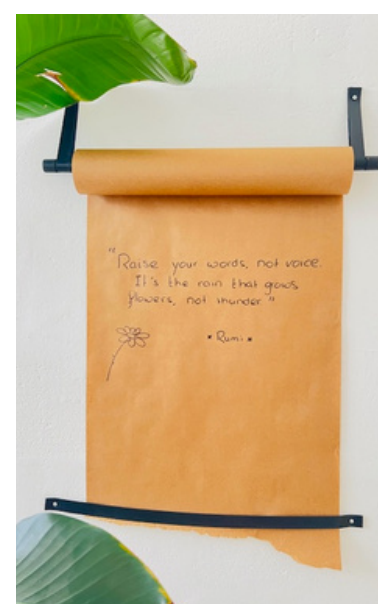 "Raise your words, not voice.
It's the rain that grows
flowers, not thunder"
• Rumi •